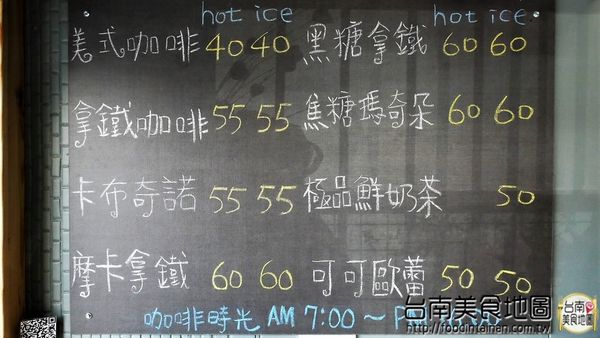 hot ice hot ice
美式咖啡 40 40 黑糖拿鐵 60 60
拿鐵咖啡 55 55 焦糖瑪奇朵 60 60
卡布奇諾 55 55 極品鮮奶茶 50
摩卡拿鐵 60 60 可可歐蕾 50 50
咖啡時光 AM 7:00 ~
台南美食地圖
http://foodintainan.com.tw/
台南
美食地圖